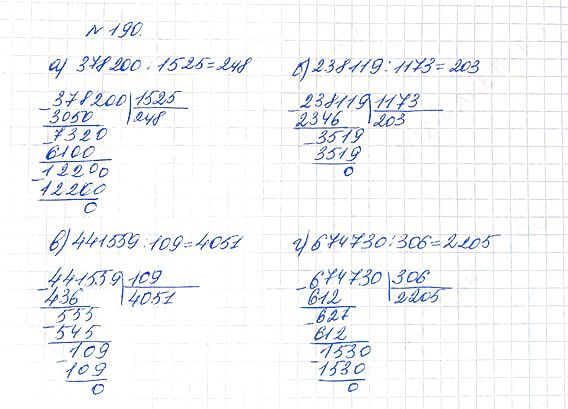 № 190.
а) 378200 : 1525 = 248
378200 | 1525
3050 | 248
7320
6100
12200
12200
0
б) 238119 : 1173 = 203
238119 | 1173
2346 | 203
3519
3519
0
в) 441559 : 109 = 4051
441559 | 109
436 | 4051
555
545
109
109
0
г) 674730 : 306 = 2205
674730 | 306
612 | 2205
627
612
1530
1530
0